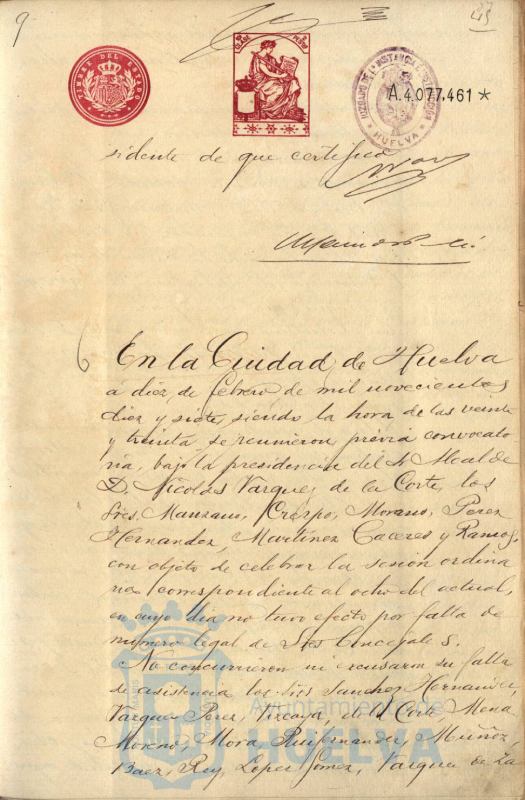 9
TIMBRE DEL ESTADO
JUZGADO DE 1ª INSTANCIA E INSTRUCCION
HUELVA
A.4.077.461 *
sidente de que certifico
6
En la Ciudad de Huelva
á diez de febrero de mil novecientos
diez y siete, siendo la hora de las veinte
y treinta, se reunieron previa convocato
ria, bajo la presidencia del Sr Alcalde
D. Nicolás Vazquez de la Corte, los
Sres. Manzano, Crespo, Morano, Perez
Hernandez, Martinez Caceres y Ramos,
con objeto de celebrar la sesión ordina
ria correspondiente al ocho del actual,
en cuyo dia no tuvo efecto por falta de
numero legal de Sres Concejales.
No concurrieron ni excusaron su falta
de asistencia los Sres Sanchez Hernandez,
Vazquez Perez, Vizcaya, de la Corte, Mena
Moreno, Mora, Ruifernandez, Muñoz,
Baez, Rey, Lopez Gomez, Vazquez de Za
Ayuntamiento de
HUELVA